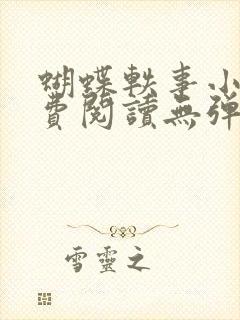 蝴蝶軼事小
費閱讀無彈
雪靈之